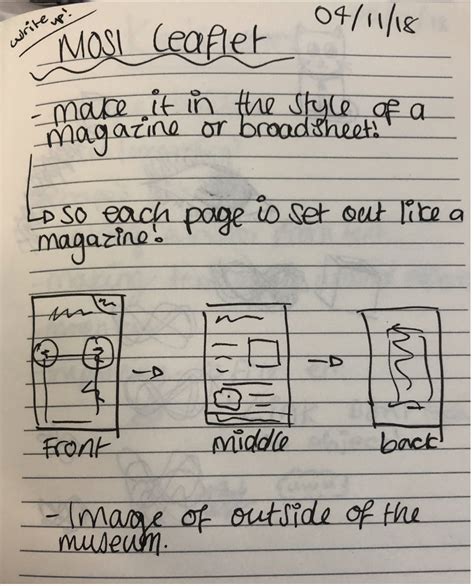 write up!
04/11/18
MOSI Leaflet
- make it in the style of a
magazine or broadsheet!
so each page is set out like a
magazine!
Front
middle
back
- Image of outside of the
museum.